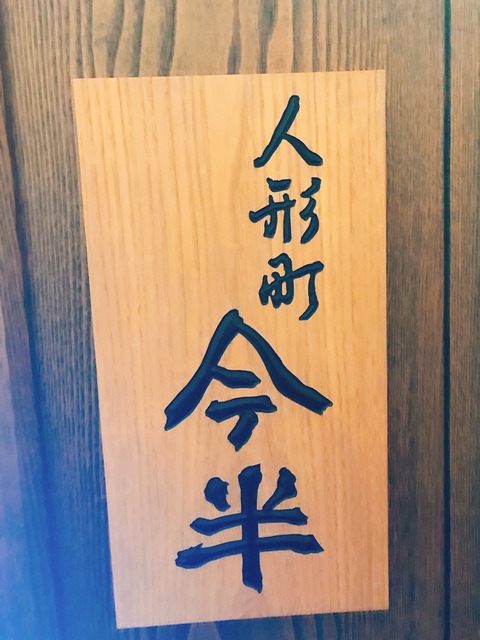 人形町
今半